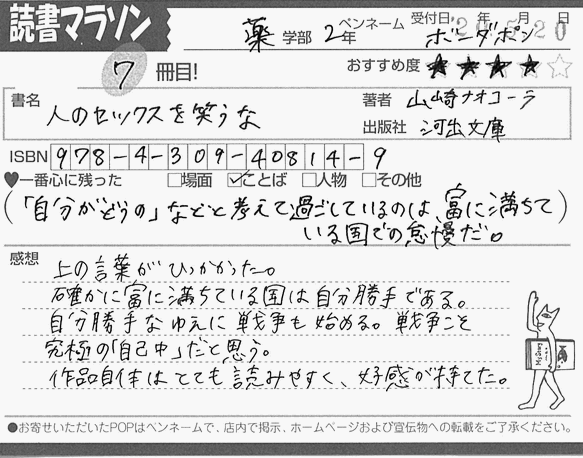 読書マラソン
薬 学部 2年 ペンネーム ボーダポン 受付日 年 月 日
7 冊目! おすすめ度 ★★★★☆
書名 人のセックスを笑うな
著者 山崎ナオコーラ
出版社 河出文庫
ISBN 978-4-309-40814-9
♥一番心に残った □場面 ☑ことば □人物 □その他
(「自分がどうの」などと考えて過ごしているのは、富に満ちて
いる国での怠慢だ。)
感想
上の言葉がひっかかった。
確かに富に満ちている国は自分勝手である。
自分勝手なゆえに戦争も始める。戦争こそ
究極の「自己中」だと思う。
作品自体はとても読みやすく、好感が持てた。
●お寄せいただいたPOPはペンネームで、店内で掲示、ホームページおよび宣伝物への転載をご了承ください。